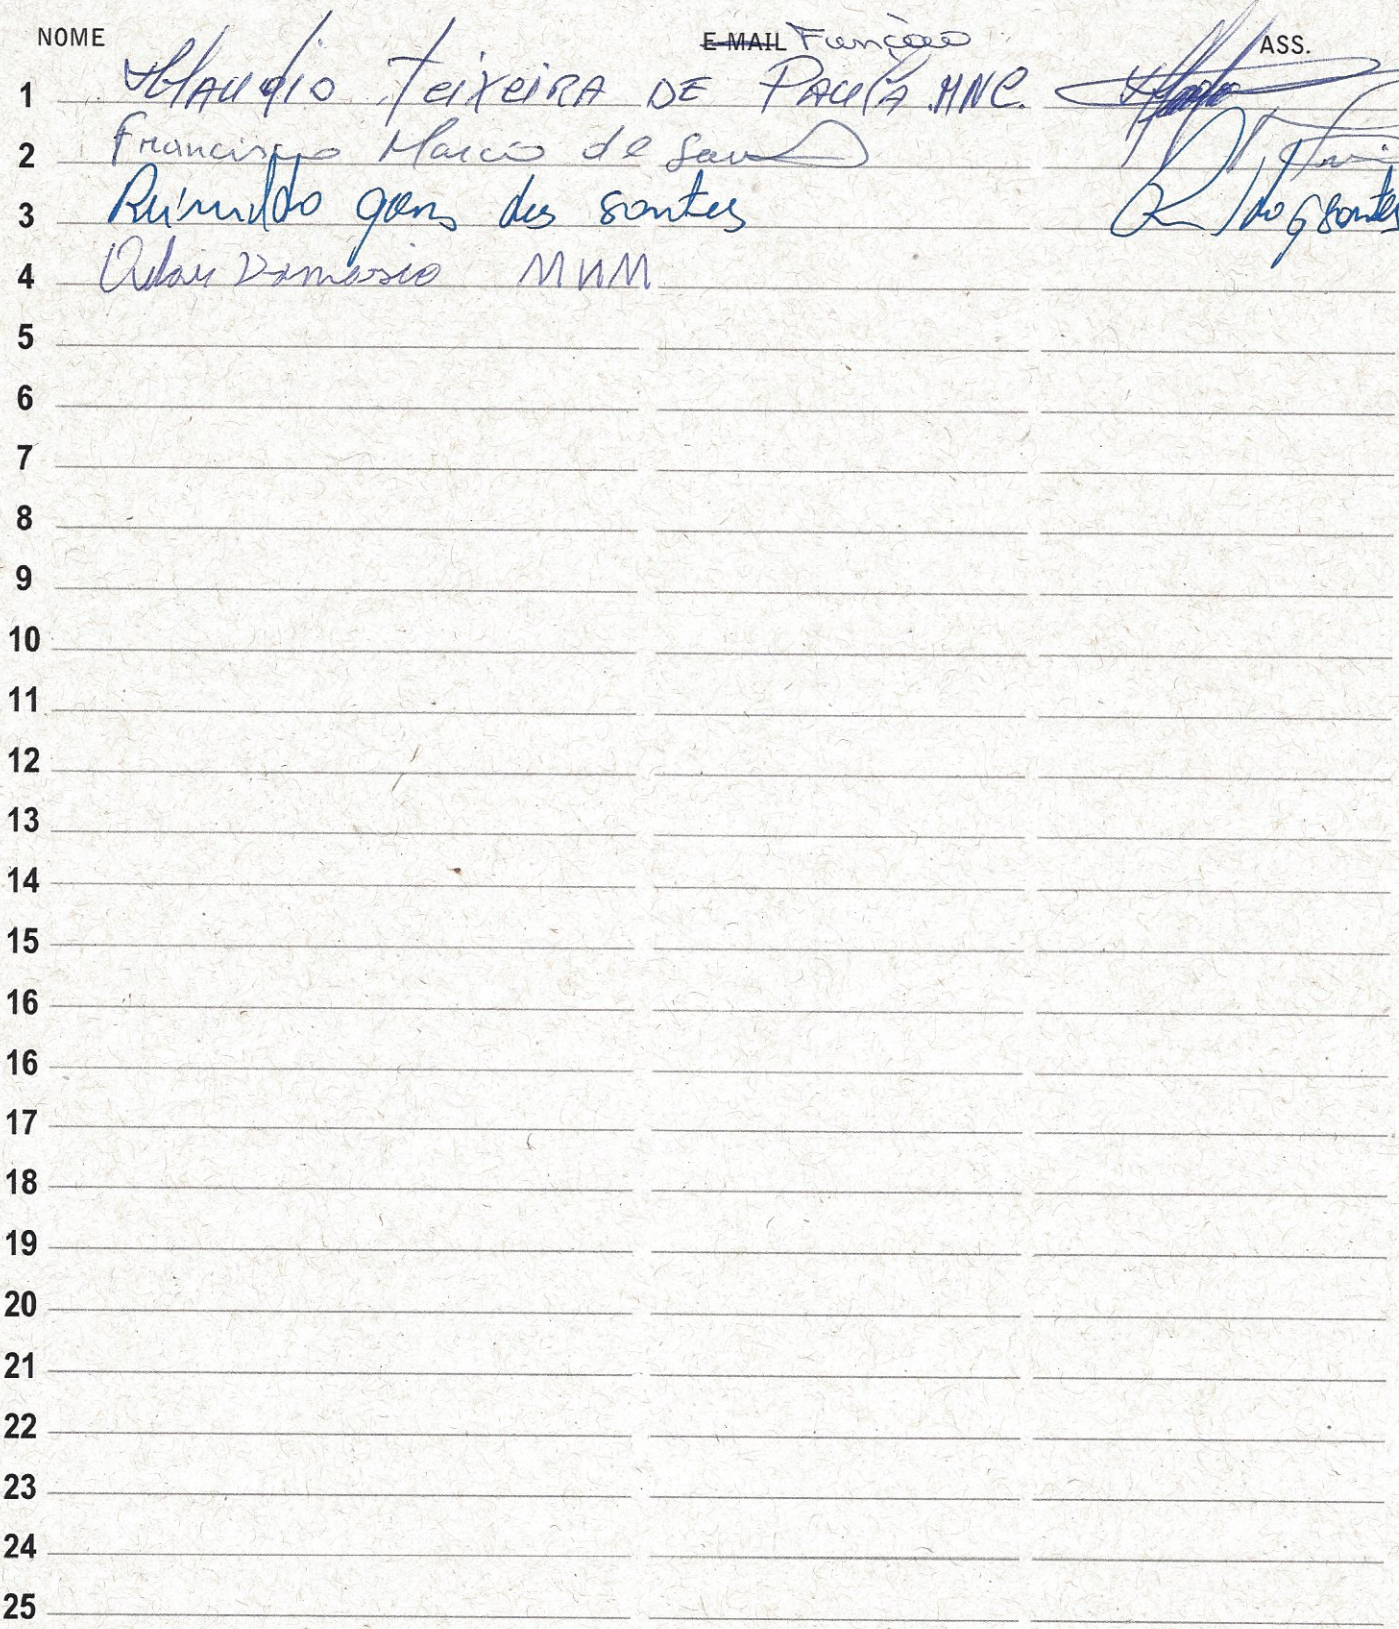 NOME E-MAIL Função ASS.
1 Claudio Teixeira DE PAULA MNC.
2 Francisco Marcio de
3 dos santos
4 Odair Damasio MNM
5
6
7
8
9
10
11
12
13
14
15
16
16
17
18
19
20
21
22
23
24
25